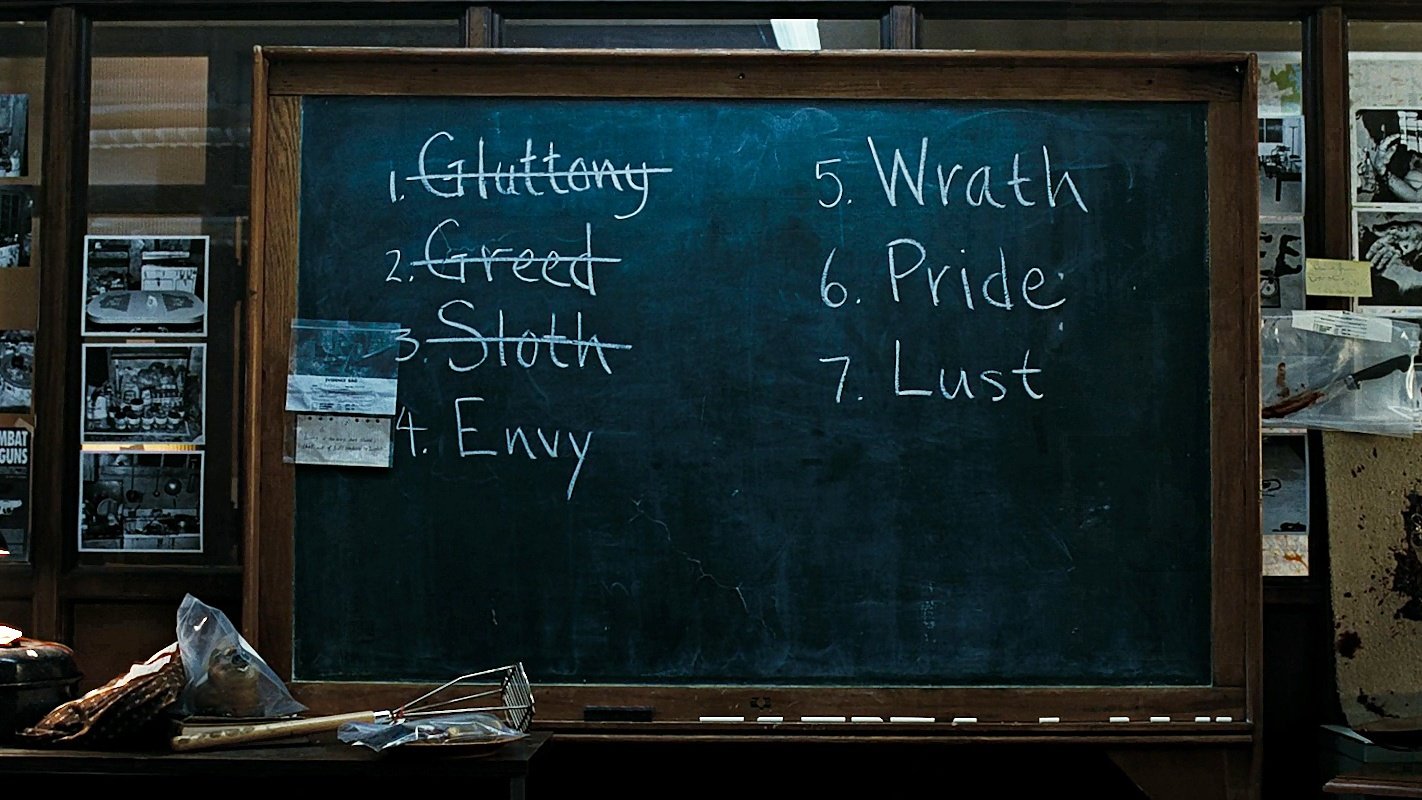 1. Gluttony
2. Greed
3. Sloth
4. Envy
5. Wrath
6. Pride
7. Lust
EVIDENCE BAG
MBAT
GUNS